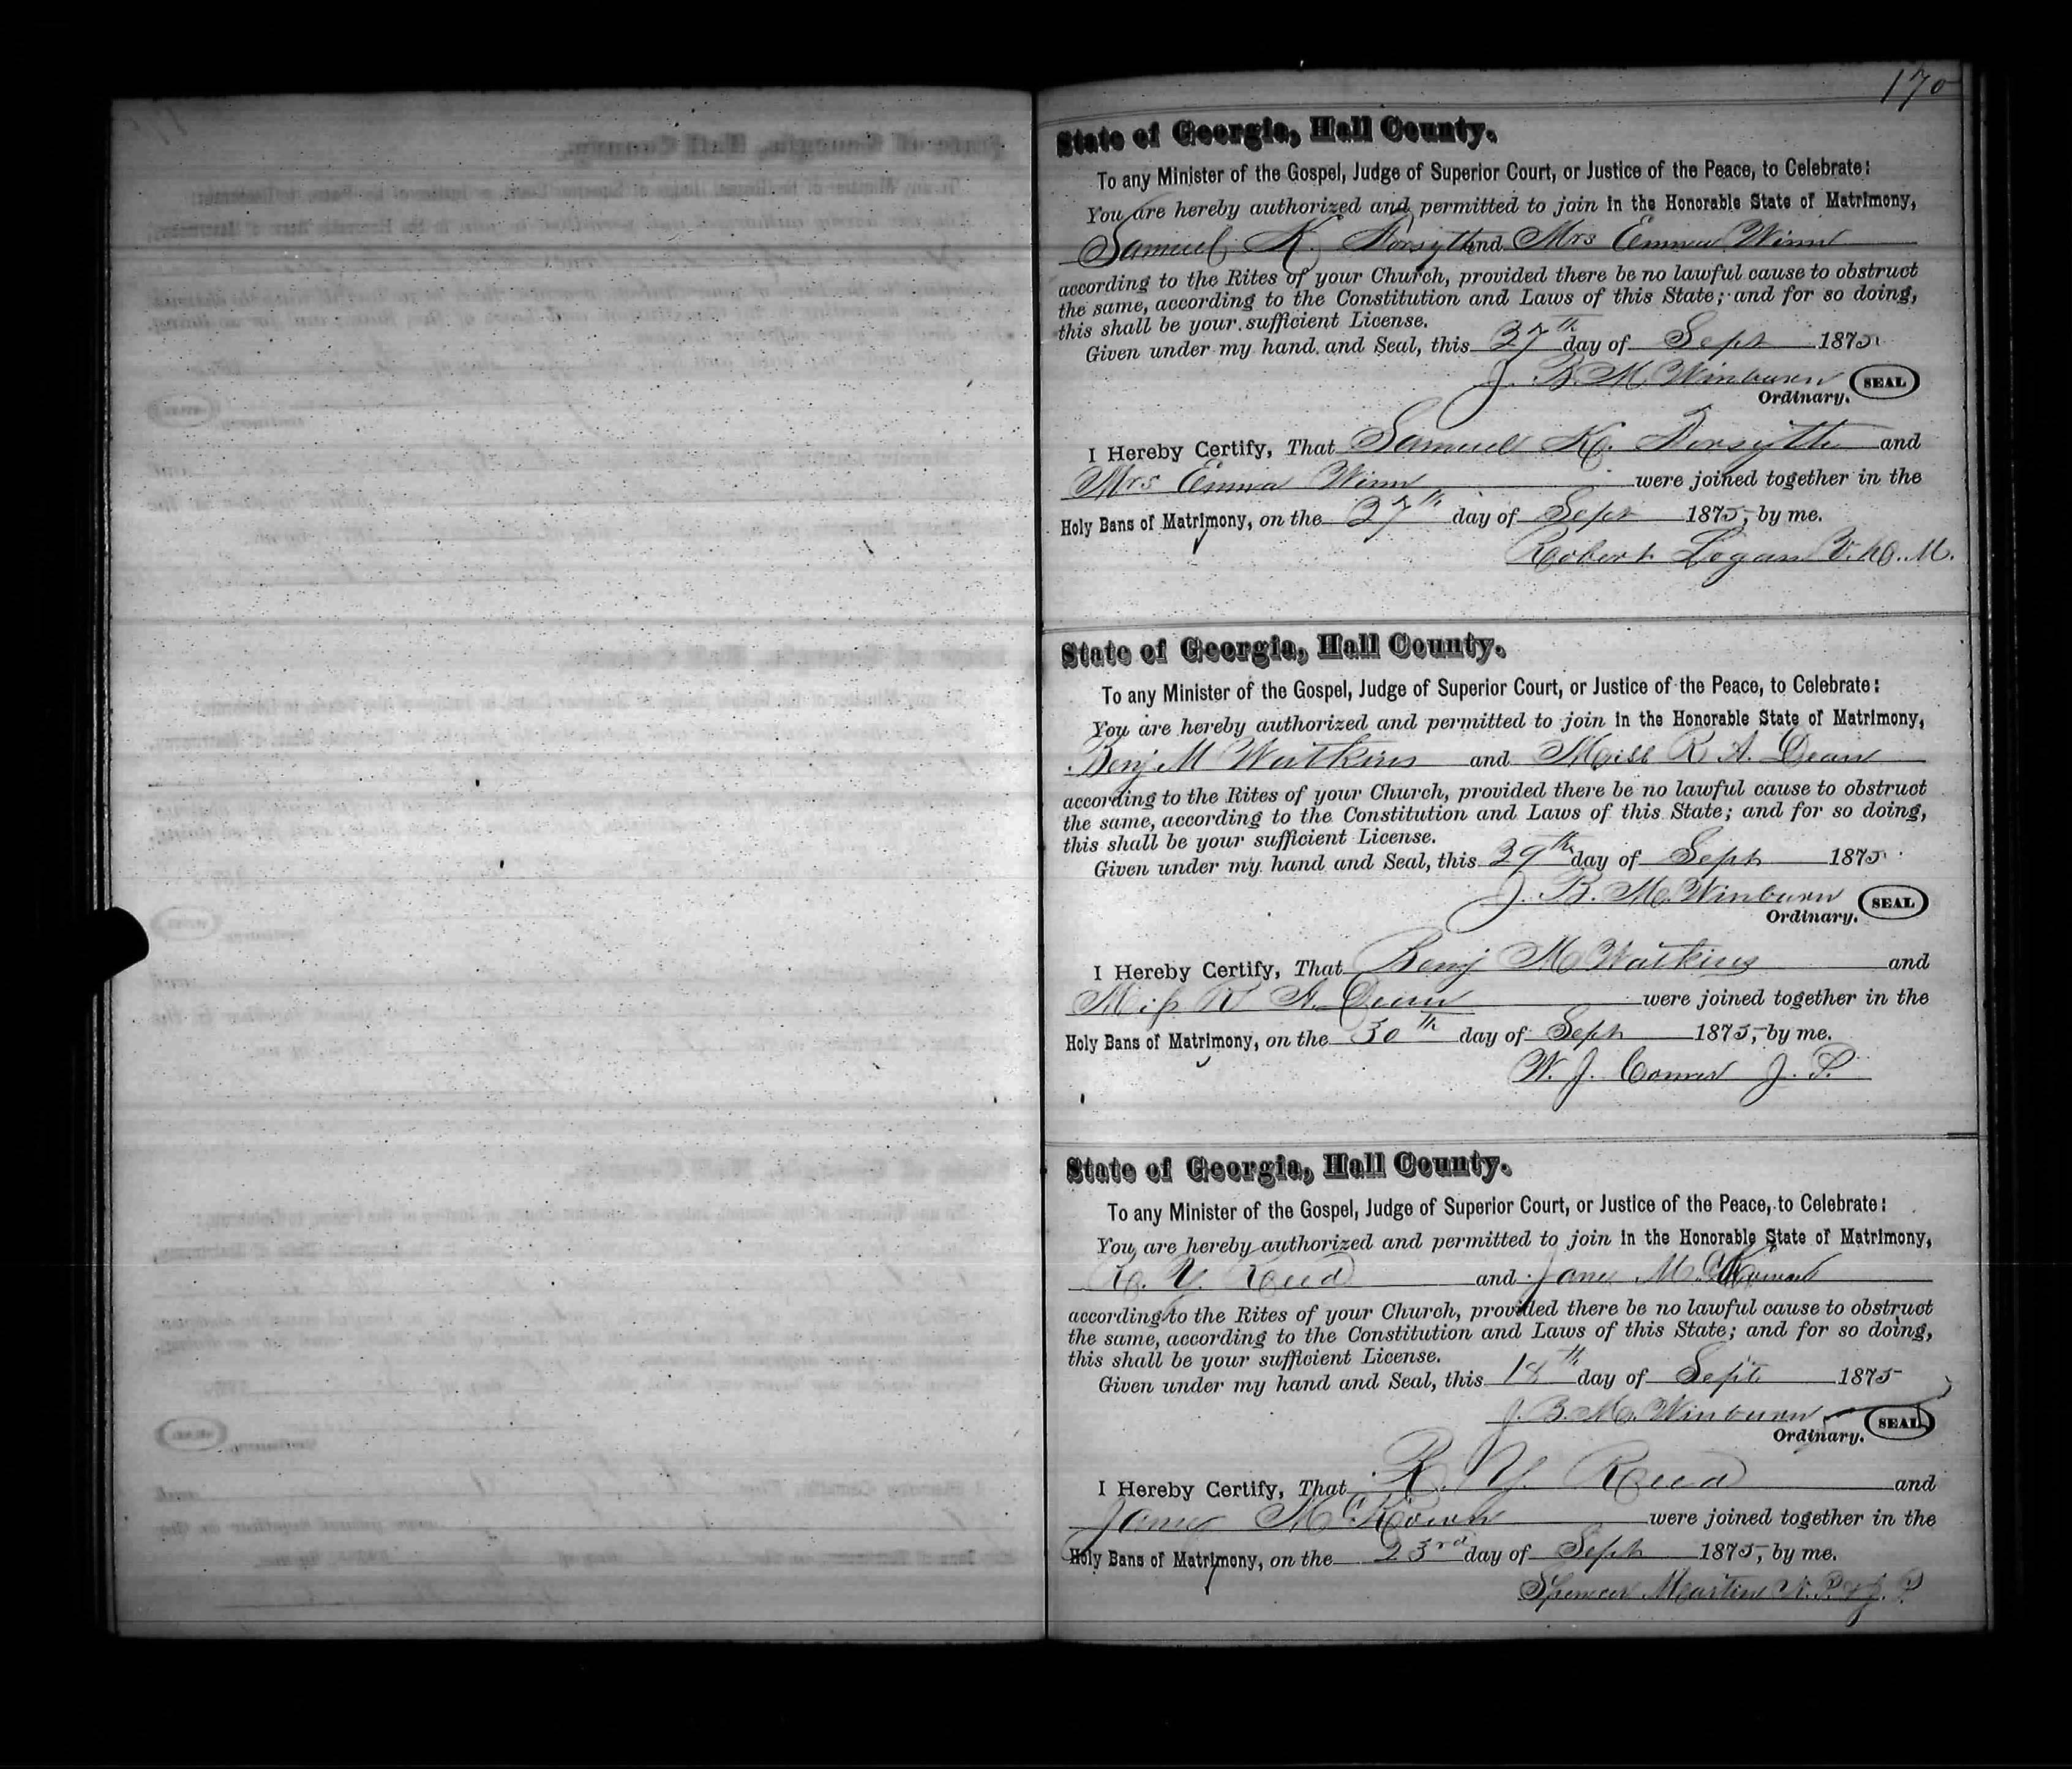 170
State of Georgia, Hall County.
To any Minister of the Gospel, Judge of Superior Court, or Justice of the Peace, to Celebrate:
You are hereby authorized and permitted to join in the Honorable State of Matrimony,
Samuel K. Forsyth and Mrs Emma Winn
according to the Rites of your Church, provided there be no lawful cause to obstruct
the same, according to the Constitution and Laws of this State; and for so doing,
this shall be your sufficient License.
Given under my hand and Seal, this 27th day of Sept 1875
J. B. M. Winburn SEAL
Ordinary.
I Hereby Certify, That Samuel K. Forsyth and
Mrs Emma Winn were joined together in the
Holy Bans of Matrimony, on the 27th day of Sept 1875, by me.
Robert Logan V. D. M.
State of Georgia, Hall County.
To any Minister of the Gospel, Judge of Superior Court, or Justice of the Peace, to Celebrate:
You are hereby authorized and permitted to join in the Honorable State of Matrimony,
Benj M Watkins and Miss R A. Dean
according to the Rites of your Church, provided there be no lawful cause to obstruct
the same, according to the Constitution and Laws of this State; and for so doing,
this shall be your sufficient License.
Given under my hand and Seal, this 29th day of Sept 1875
J. B. M. Winburn SEAL
Ordinary.
I Hereby Certify, That Benj M Watkins and
Miss R A. Dean were joined together in the
Holy Bans of Matrimony, on the 30th day of Sept 1875, by me.
W. J. J. P.
State of Georgia, Hall County.
To any Minister of the Gospel, Judge of Superior Court, or Justice of the Peace, to Celebrate:
You are hereby authorized and permitted to join in the Honorable State of Matrimony,
R. Y. Reed and Jane
according to the Rites of your Church, provided there be no lawful cause to obstruct
the same, according to the Constitution and Laws of this State; and for so doing,
this shall be your sufficient License.
Given under my hand and Seal, this 18th day of Sept 1875
J. B. M. Winburn SEAL
Ordinary.
I Hereby Certify, That R. Y. Reed and
Jane were joined together in the
Holy Bans of Matrimony, on the 23rd day of Sept 1875, by me.
Spencer Martin N. P. & J. P.